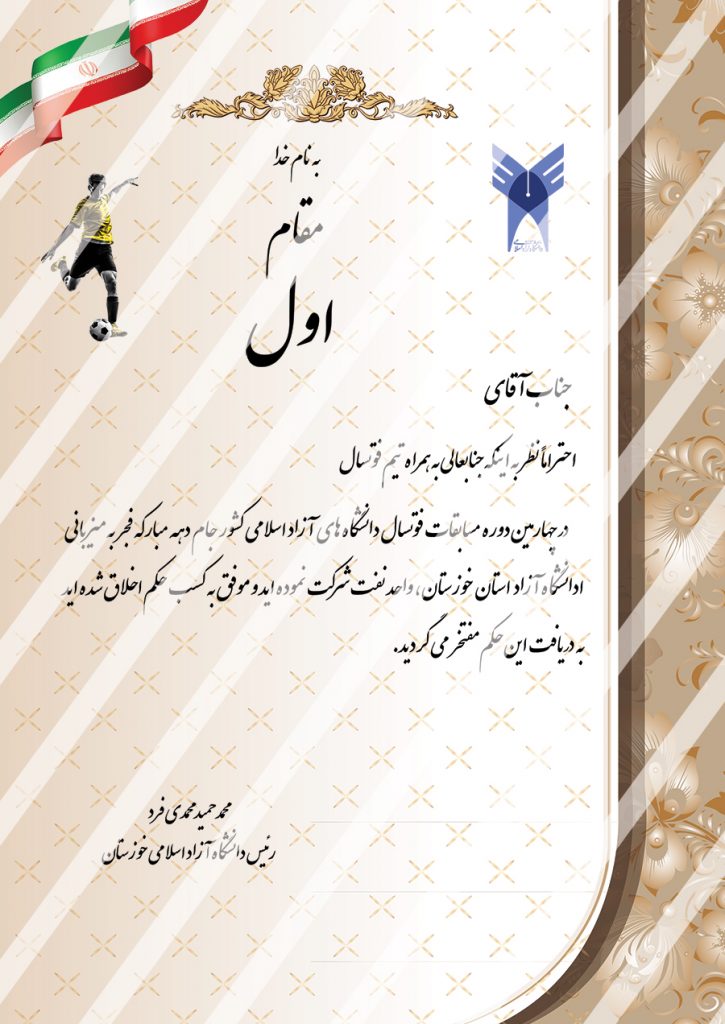 به نام خدا
مقام
اول
جناب آقای
احتراماً نظر به اینکه جنابعالی به همراه تیم فوتسال
در چهارمین دوره مسابقات فوتسال دانشگاه های آزاد اسلامی کشور جام دهه مبارکه فجر به میزبانی
ادانشگاه آزاد استان خوزستان ، واحد نفت شرکت نموده اید و موفق به کسب حکم اخلاق شده اید
به دریافت این حکم مفتخر می گردید.
محمد حمید محمدی فرد
رئیس دانشگاه آزاد اسلامی خوزستان